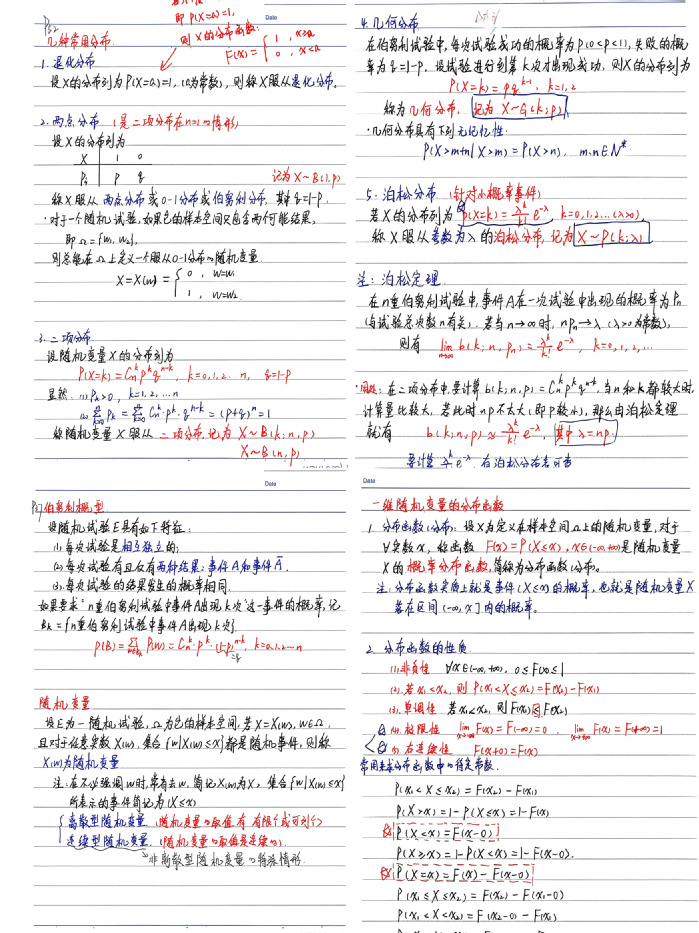 P52
即 P(X=a)=1,
几种常用分布
则 X的分布函数:
F(x)= { 1 , x≥a
0 , x<a
1. 退化分布
设X的分布列为 P(X=a)=1, (a为常数), 则称X服从退化分布.
2. 两点分布 (是二项分布在n=1的情形)
设X的分布列为
X | 1 0
Pk | p q
记为 X~B(1,p)
称X服从 两点分布或0-1分布或伯努利分布, 其中 q=1-p.
·对于一个随机试验,如果它的样本空间只包含两个可能结果,
即Ω={w₁, w₂},
则总能在Ω上定义一个服从0-1分布的随机变量
X=X(w)= { 0 , w=w₁
1 , w=w₂
3. 二项分布
设随机变量X的分布列为
P(X=k)=Cₙᵏpᵏqⁿ⁻ᵏ, k=0,1,2...n, q=1-p
显然. (1) Pk>0, k=1,2,...n
(2) Σ Pk = Σ Cₙᵏ·pᵏ·qⁿ⁻ᵏ = (p+q)ⁿ=1
称随机变量X服从 二项分布,记为 X~B(k;n,p)
X~B(n,p)
Date
4. 几何分布
在伯努利试验中,每次试验成功的概率为p(0<p<1),失败的概
率为q=1-p. 设试验进行到第k次才出现成功, 则X的分布列为
P(X=k)=pqᵏ⁻¹, k=1,2
称为几何分布, 记为 X~G(k;p)
·几何分布具有下列无记忆性.
P(X>m+n|X>m)=P(X>n), m,n∈N*
5. 泊松分布 (针对小概率事件)
若X的分布列为 P(X=k)=λᵏ/k! e^-λ, k=0,1,2...(λ>0),
称X服从参数为λ的泊松分布,记为 X~P(k;λ)
注: 泊松定理
在n重伯努利试验中,事件A在一次试验中出现的概率为Pn
(与试验总次数n有关). 若当n→∞时, nPn→λ (λ>0为常数),
则有 lim b(k; n, pn)=λᵏ/k! e^-λ, k=0,1,2,...
n→∞
·用处: 在二项分布中,要计算b(k; n,p)=Cₙᵏpᵏqⁿ⁻ᵏ,当n和k都较大时,
计算量比较大, 若此时np不太大(即p较小), 那么由泊松定理
就有 b(k;n,p)≈λᵏ/k! e^-λ, 其中 λ=np.
要计算 λᵏ/k! e^-λ. 有泊松分布表可查
Date
伯努利概型
设随机试验E具有如下特征:
(1)每次试验是相互独立的;
(2)每次试验有且仅有两种结果: 事件A和事件Ā.
(3)每次试验的结果发生的概率相同.
如果要求"n重伯努利试验中事件A出现k次"这一事件的概率,记
Bk={n重伯努利试验中事件A出现k次}
P(B)=Σ P(w)=Cₙᵏ·pᵏ·(1-p)ⁿ⁻ᵏ, k=0,1,2...n
=q
随机变量
设E为一随机试验, Ω为它的样本空间,若X=X(w), w∈Ω.
且对于任意实数X(w), 集合{w|X(w)≤x}都是随机事件, 则称
X(w)为随机变量
注: 在不必强调w时,常省去w, 简记X(w)为X, 集合{w|X(w)≤x}
所表示的事件简记为(X≤x)
{ 离散型随机变量 (随机变量的取值有有限个或可列个)
连续型随机变量. (随机变量的取值是连续的)
非离散型随机变量的特殊情形.
Date
一维随机变量的分布函数
1. 分布函数(分布): 设X为定义在样本空间Ω上的随机变量, 对于
∀实数x, 称函数 F(x)=P(X≤x), x∈(-∞,+∞)是随机变量
X的概率分布函数,简称为分布函数(分布).
注: 分布函数实质上就是事件(X≤x)的概率, 也就是随机变量X
落在区间(-∞,x]内的概率.
2. 分布函数的性质
(1).非负性 ∀x∈(-∞,+∞), 0≤F(x)≤1
(2).若x₁<x₂, 则 P(x₁<X≤x₂)=F(x₂)-F(x₁)
(3).单调性 若x₁<x₂, 则F(x₁)≤F(x₂)
(4).极限性 lim F(x)=F(-∞)=0 , lim F(x)=F(+∞)=1
x→-∞ x→+∞
(5).右连续性 F(x+0)=F(x)
常用来求分布函数中的待定常数.
P(x₁<X≤x₂)=F(x₂)-F(x₁)
P(X>x)=1-P(X≤x)=1-F(x)
P(X<x)=F(x-0)
P(X≥x)=1-P(X<x)=1-F(x-0).
P(X=x)=F(x)-F(x-0)
P(x₁≤X≤x₂)=F(x₂)-F(x₁-0)
P(x₁<X<x₂)=F(x₂-0)-F(x₁)